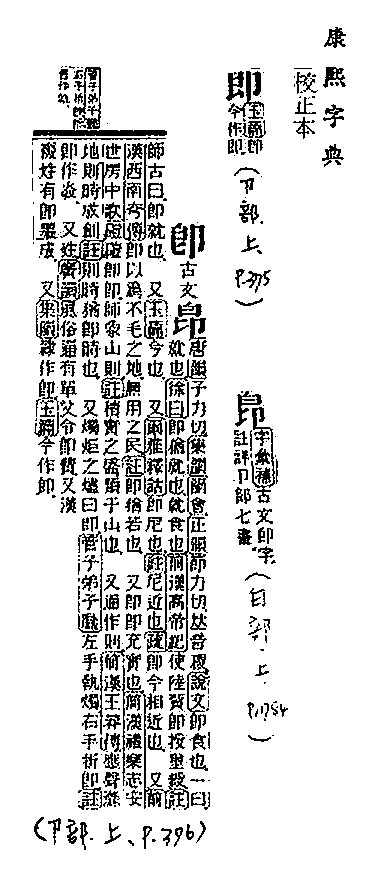 康熙字典
校正本
即 玉篇卽
今作即
(卩部.上. P.395)
㫐 字彙補古文卽字
註詳卩部七畫
(日部.上. P.1754)
卽 古文 㫐
唐韻子力切集韻韻會正韻節力切𠀤音堲說文卽食也一曰
就也徐曰卽猶就也就食也前漢高帝紀使陸賈卽授璽綬註
師古曰卽就也 又玉篇今也 又爾雅釋詁卽尼也註尼近也疏卽今相近也 又前
漢西南夷傳卽以爲不毛之地無用之民註卽猶若也 又卽卽充實也前漢禮樂志安
世房中歌磑磑卽卽師象山則註積實之盛類于山也 又通作則前漢王莽傳應聲滌
地則時成創註則時猶卽時也 又燭炬之燼曰卽管子弟子職左手執燭右手折卽註
卽作 又姓廣韻風俗通有單父令卽費又漢
複姓有卽墨成 又集韻隸作即玉篇今作即
管子弟子職
(卩部.上、P.396)